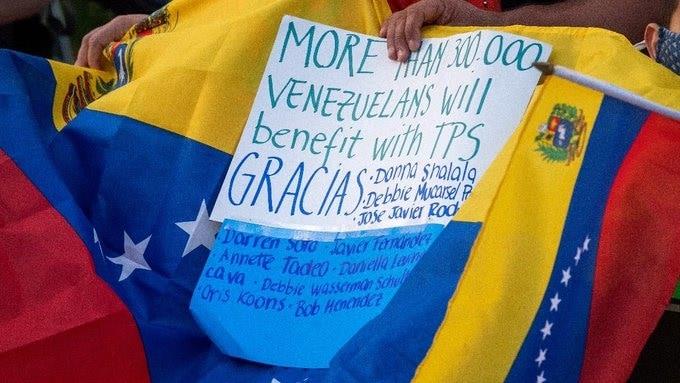 MORE THAN 300.000
VENEZUELANS WILL
benefit with TPS
GRACIAS
• Donna Shalala
• Debbie Mucarsel P
• Jose Javier Rod
• Darren Soto • Javier Fernández
• Annette Tadeo • Daniella Levin
cava • Debbie Wasserman Schul
• Oris Koons • Bob Menendez